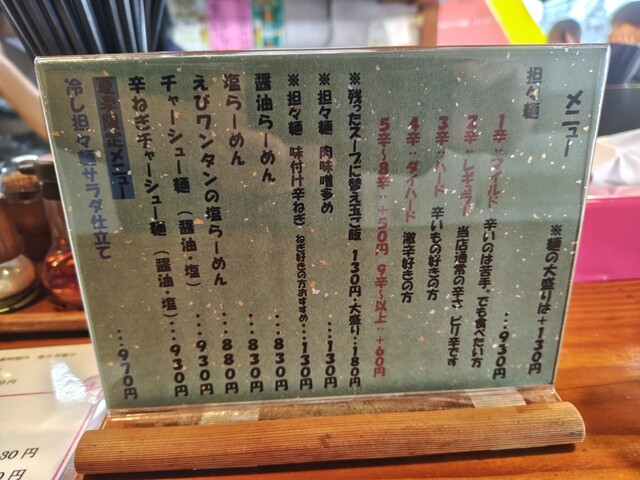 メニュー
※麺の大盛りは+130円
担々麺 …930円
1辛:マイルド 辛いのは苦手。でも食べたい方
2辛:レギュラー 当店通常の辛さ、ピリ辛です
3辛:ハード 辛いもの好きの方
4辛:ダイハード 激辛好きの方
5辛〜8辛:+50円 9辛〜以上:+60円
※残ったスープに替え玉ご飯 130円・大盛り…180円
※担々麺 肉味噌多め …130円
※担々麺 味付け辛ねぎ ねぎ好きの方おすすめ…130円
醤油らーめん …830円
塩らーめん …880円
えびワンタンの塩らーめん …930円
チャーシュー麺 (醤油・塩) …930円
辛ねぎチャーシュー麺 (醤油・塩) …930円
夏季限定メニュー
冷し担々麺サラダ仕立て …970円
30円
円